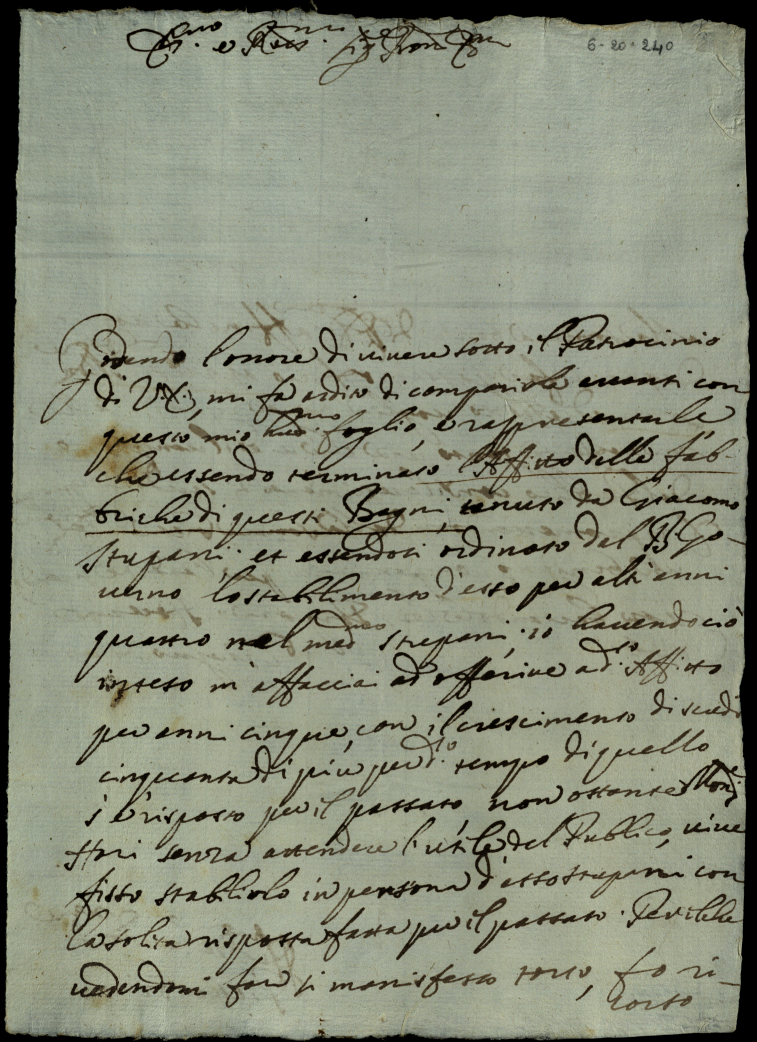 Em.o e Rev.mo Sig.e Pron Col.mo
6-20-240
Godendo l'onore di vivere sotto il Patrocinio
di V.E., mi fà ardito di comparirle avanti con
questo mio hum.mo foglio, e rappresentarle
che essendo terminato l'Affitto delle fab-
briche di questi Bagni, tenuto da Giacomo
Strepani. et essendosi ordinato dal B. Go-
verno lo stabilimento d'esso per altri anni
quattro nel med.mo Strepani, io havendo ciò
inteso m'affacciai ad offerire a d.o Affitto
per anni cinque, con il crescimento di scudi
cinquanta di più per d.o tempo di quello
s'è risposto per il passato, non ostante Mons.e
senza attendere l'utile del Publico, vive
fisso stabilirlo in persona d'esso Strepani con
la solita risposta fatta per il passato. Per il che
vedendomi fare sì manifesto torto, fo ri-
corso